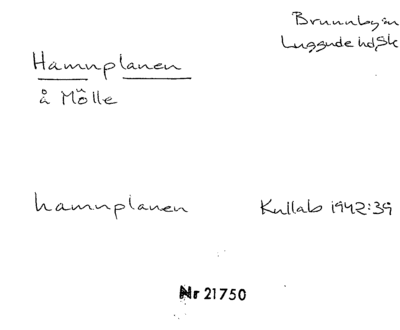 Brunnby sn
Luggude hd, Sk
Hamnplanen
å Mölle
hamnplanen
Kullab 1942:39
Nr 21750